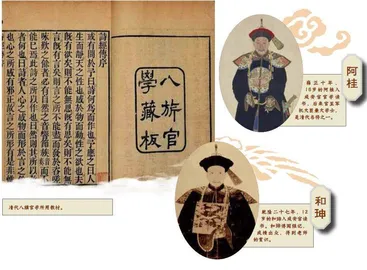 詩經傳序
或有問於予曰詩何為而作也予應之曰人
生而靜天之性也感於物而動性之欲也夫
既有欲矣則不能無思既有思矣則不能無
言既有言矣則言之所不能盡而發於咨嗟
咏歎之餘者必有自然之音響節族而不
能已焉此詩之所以作也曰然則其所以教
者何也曰詩者人心之感物而形於言之餘
也心之所感有邪正故言之所形有是非惟
八旗官
學藏板
清代八旗官学所用教材。
阿桂
雍正十年,
的阿桂入
咸安宫官学读
书。后来官至军
机大臣兼大学士,
是清代名将之一。
和珅
乾隆二十七年,
岁的和珅入咸安宫官学读
书。和珅博闻强记,
成绩出众,得到老师
的赏识。